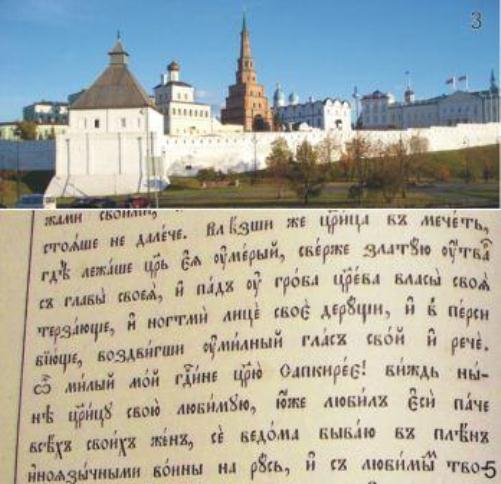 3
жами своими,
стоѧше не далече. Влѣзши же цр҃ица въ мечеть,
гдѣ̀ лежа́ше цр҃ь є҆ѧ̀ ᲂу҆ме́рый, све́рже злату́ю ᲂу҆́тва
съ главы̀ своеѧ̀, и҆ па́дъ ᲂу҆ гро́ба цр҃е́ва власы̀ своѧ̀
терза́юще, и҆ ногтмѝ лицѐ своѐ деру́щи, и҆ в̾ пе́рси
бїю́ще, воздви́гши ᲂу҆ми́лный гла́съ сво́й и҆ речѐ.
ѽ ми́лый мо́й гд҃и́не цр҃ю̀ Сапкире́е! ви́ждь ны-
нѣ̀ цр҃и́цу свою̀ люби́мую, ю҆́же люби́лъ є҆сѝ па́че
всѣ́хъ свои́хъ же́нъ, сѐ ведо́ма быва́ю въ плѣ́нъ
и҆ноѧзы́чными во́ины на ру́сь, и҆ съ люби́мы̑м тво-
5